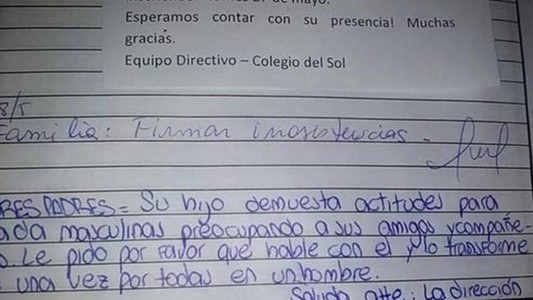 Esperamos contar con su presencia! Muchas
gracias.
Equipo Directivo – Colegio del Sol
8/5
Familia: Firmar inasistencias -
RES PADRES = Su hijo demuesta actitudes para
ada masculinas preocupando a sus amigos y compañe-
s. Le pido por favor que hable con el y lo transforme
una vez por todas en un hombre.
Saluda atte: La dirección